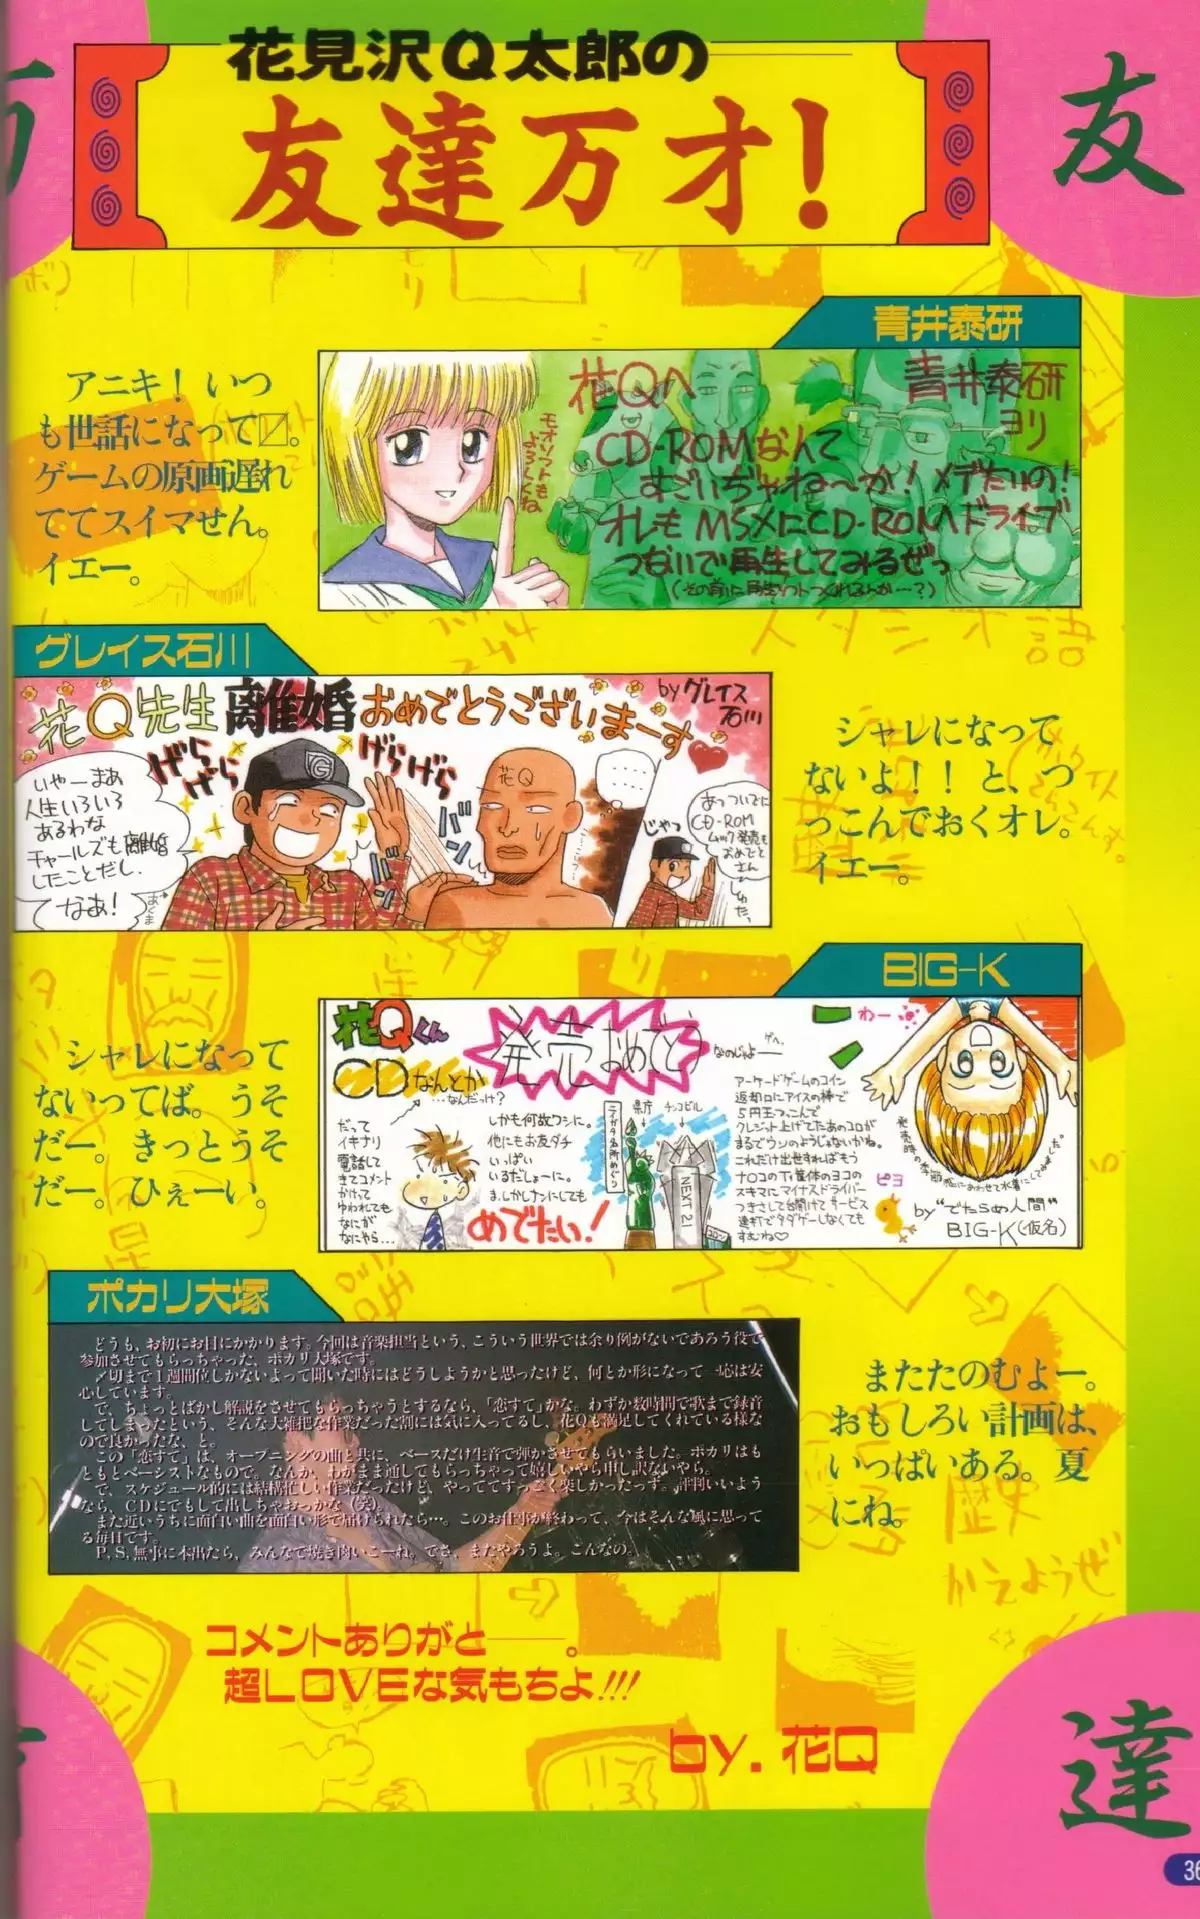 花見沢Q太郎の
友達万才!
友
青井泰研
アニキ! いつ
も世話になって〼。
ゲームの原画遅れ
ててスイマせん。
イエー。
花Qへ
青井泰研
ヨリ
CD-ROMなんて
すごいぢゃね〜か! メデたいの!
オレもMSXにCD-ROMドライブ
つないで再生してみるぜっ
(その前に再生ソフトつくれるんか…?)
グレイス石川
花Q先生離婚おめでとうございまーす
byグレイス
石川
いやーまあ
人生いろいろ
あるわな
チャールズも離婚
したことだし.
なあ!
げらげら
げらげら
バン
バン
花Q
じゃっ
あっついでに
CD-ROM
ムック発売も
おめでと
さん
シャレになって
ないよ!! と、つ
っこんでおくオレ。
イエー。
BIG-K
シャレになって
ないってば。うそ
だー。きっとうそ
だー。ひぇーい。
花Qくん
CDなんとか
…なんだっけ?
発売おめでとう
なのじゃよ——
だって
イキナリ
電話して
きてコメント
かけって
ゆわれても
なにが
なにやら…
しかも何故ワシに。
他にもお友ダチ
いっぱい
いるだしょーに。
ま.しかしナンにしても
めでたい!
県庁
NEXT21
アーケードゲームのコイン
返却口にアイスの棒で
5円玉つっこんで
クレジット上げてたあのコロが
まるでウソのようじゃないかね。
これだけ出世すればもう
ナロコのTV筐体のヨコの
スキマにマイナスドライバー
つきさして台開けてサービス
連打でタダゲーしなくても
すむね♡
わー
ピヨ
by "でたらめ人間"
BIG-K(仮名)
ポカリ大塚
どうも、お初にお目にかかります。今回は音楽担当という、こういう世界では余り例がないであろう役で
参加させてもらっちゃった、ポカリ大塚です。
〆切まで1週間位しかないよって聞いた時にはどうしようかと思ったけど、何とか形になって一応は安
心しています。
で、ちょっとばかし解説をさせてもらっちゃうとするなら、「恋すて」かな。わずか数時間で歌まで録音
してしまったという、そんな大雑把な作業だった割には気に入ってるし、花Qも満足してくれている様な
ので良かったな、と。
この「恋すて」は、オープニングの曲と共に、ベースだけ生音で弾かさせてもらいました。ポカリはも
ともとベーシストなもので。なんか、わがまま通してもらっちゃって嬉しいやら申し訳ないやら。
で、スケジュール的には結構忙しい作業だったけど、やっててすっごく楽しかったっす。評判いいよう
なら、CDにでもして出しちゃおっかな(笑)。
また近いうちに面白い曲を面白い形で届けられたら…。このお仕事が終わって、今はそんな風に思って
る毎日です。
P,S,無事に本出たら、みんなで焼き肉いこーね。でさ、またやろうよ。こんなの。
またたのむよー。
おもしろい計画は、
いっぱいある。夏
にね。
コメントありがと——。
超LOVEな気もちよ!!!
by. 花Q
達
36